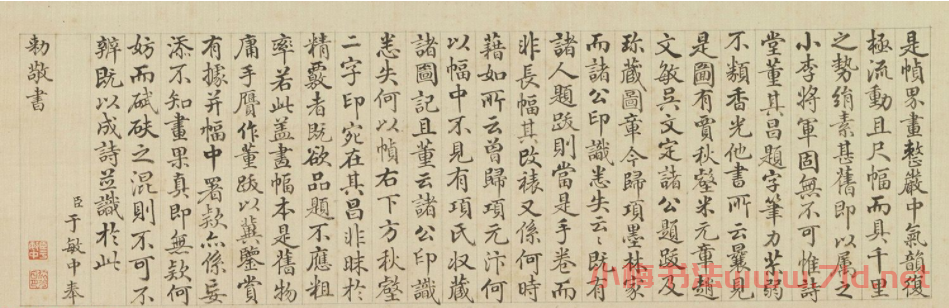 是幀界畫整嚴中氣韻復
極流動且尺幅而具千里
之勢絹素甚舊即以屬之
小李將軍固無不可惟詩
堂董其昌題字筆力少弱
不類香光他書所云曩見
是圖有賈秋壑米元章趙
文敏吳文定諸公題跋及
珎藏圖章今歸項墨林家
而諸公印識悉失云〻既有
諸人題跋則當是手卷而
非長幅其改裱又係何時
藉如所云曾歸項元汴何
以幅中不見有項氏收藏
諸圖記且董云諸公印識
悉失何以幀右下方秋壑
二字印宛在其昌非昧於
精覈者既欲品題不應粗
率若此盖畫幅本是舊物
庸手贋作董跋以冀鑒賞
有據并幅中署欵亦係妄
添不知畫果真即無欵何
妨而碔砆之混則不可不
辨既以成詩並識於此
臣于敏中奉
勅敬書